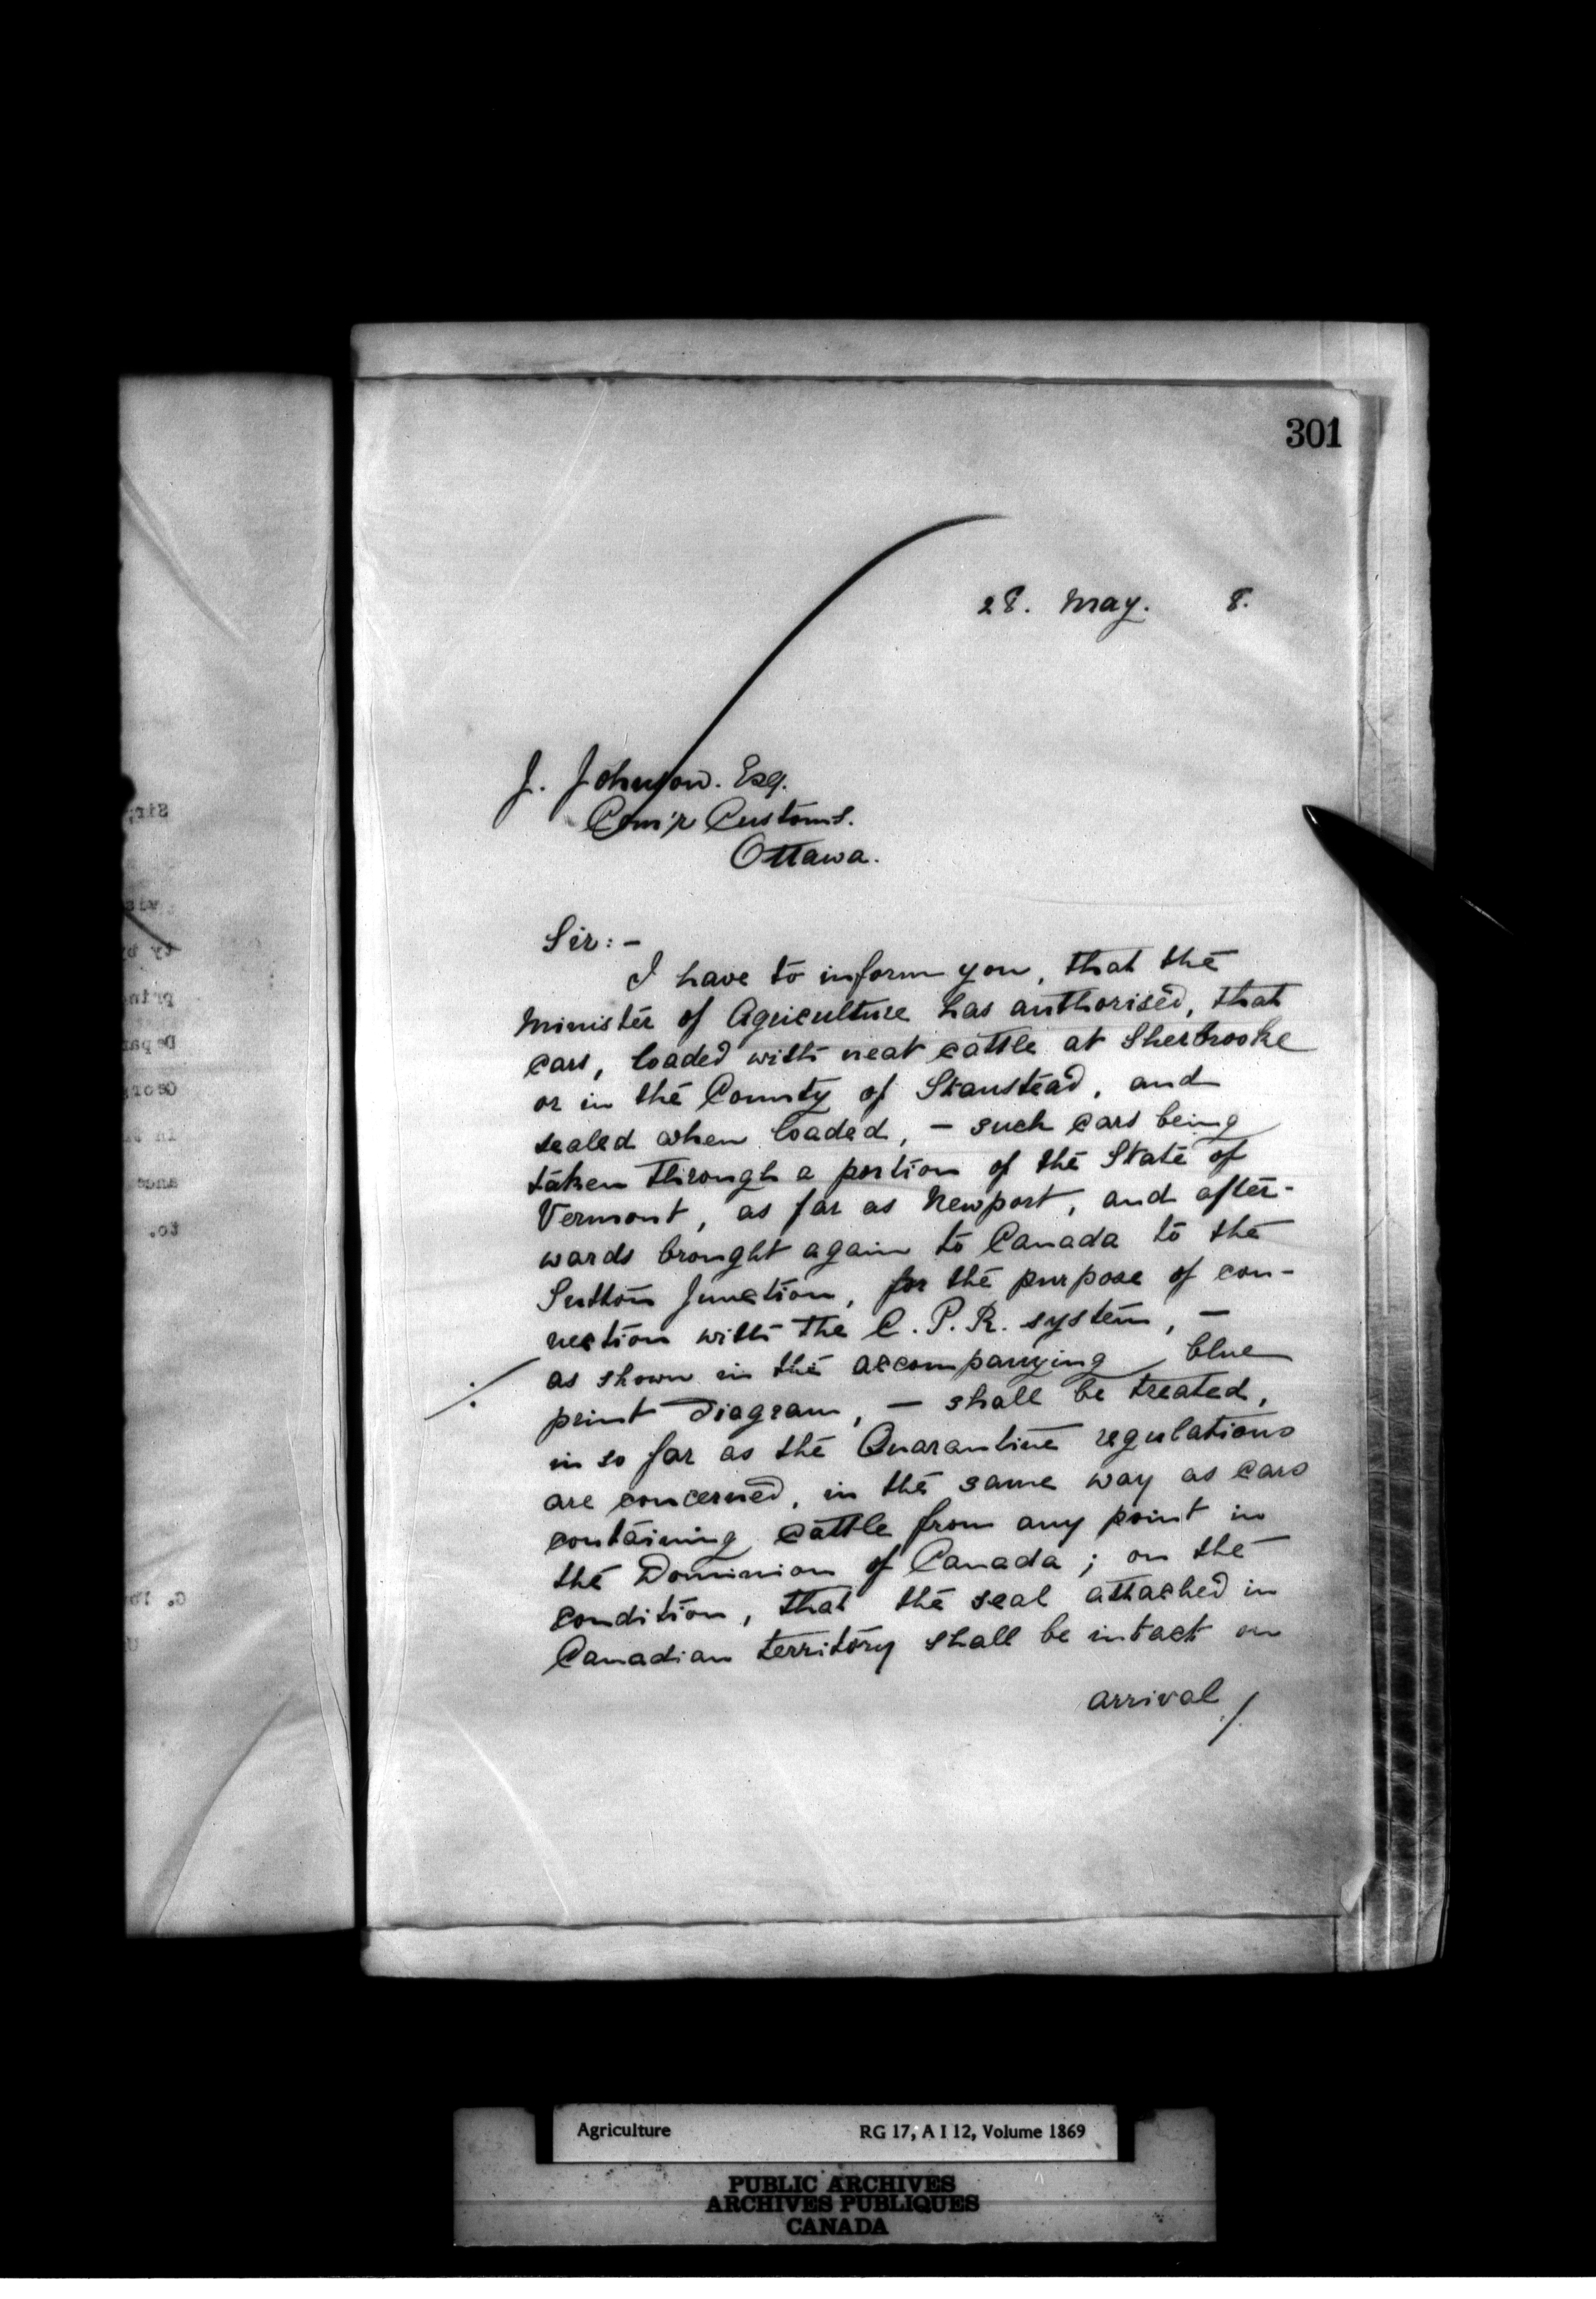 301
28. May. 8.
J. Johnson. Esq.
Com'r Customs.
Ottawa.
Sir:-
I have to inform you, that the
Minister of Agriculture has authorised, that
cars, loaded with neat cattle at Sherbrooke
or in the County of Stanstead, and
sealed when loaded, - such cars being
taken through a portion of the State of
Vermont, as far as Newport, and after-
wards brought again to Canada to the
Sutton Junction, for the purpose of con-
nection with the C.P.R. system, -
as shown in the accompanying blue
print diagram, - shall be treated,
in so far as the Quarantine regulations
are concerned, in the same way as cars
containing cattle from any point in
the Dominion of Canada; on the
condition, that the seal attached in
Canadian territory shall be intact on
arrival ./.
Agriculture RG 17, A I 12, Volume 1869
PUBLIC ARCHIVES
ARCHIVES PUBLIQUES
CANADA